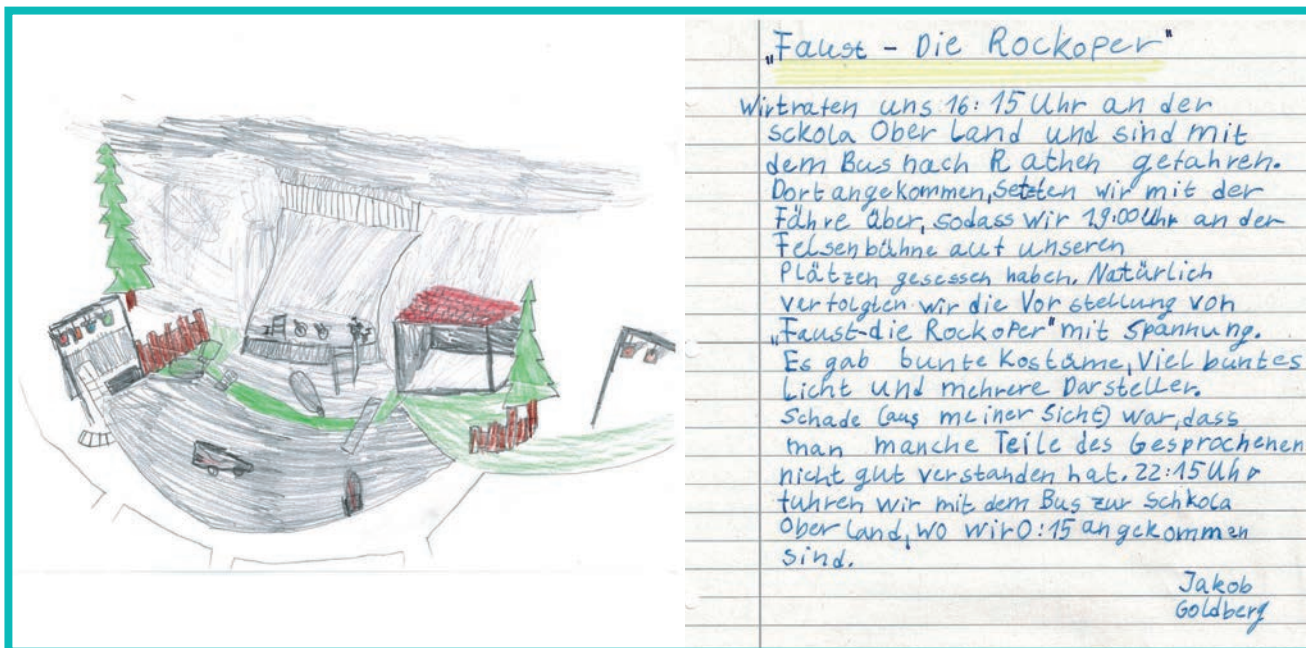 „Faust - Die Rockoper"
Wir traten uns 16:15 Uhr an der
sckola Ober Land und sind mit
dem Bus nach Rathen gefahren.
Dort angekommen, Setzten wir mit der
Fähre über, sodass wir 19:00 Uhr an der
Felsenbühne auf unseren
Plätzen gesessen haben. Natürlich
verfolgten wir die Vorstellung von
„Faust-die Rockoper" mit Spannung.
Es gab bunte Kostüme, Viel buntes
Licht und mehrere Darsteller.
Schade (aus meiner Sicht) war, dass
man manche Teile des Gesprochenen
nicht gut verstanden hat. 22:15 Uhr
fuhren wir mit dem Bus zur Schkola
Ober Land, wo wir 0:15 angekommen
sind.
Jakob
Goldberg